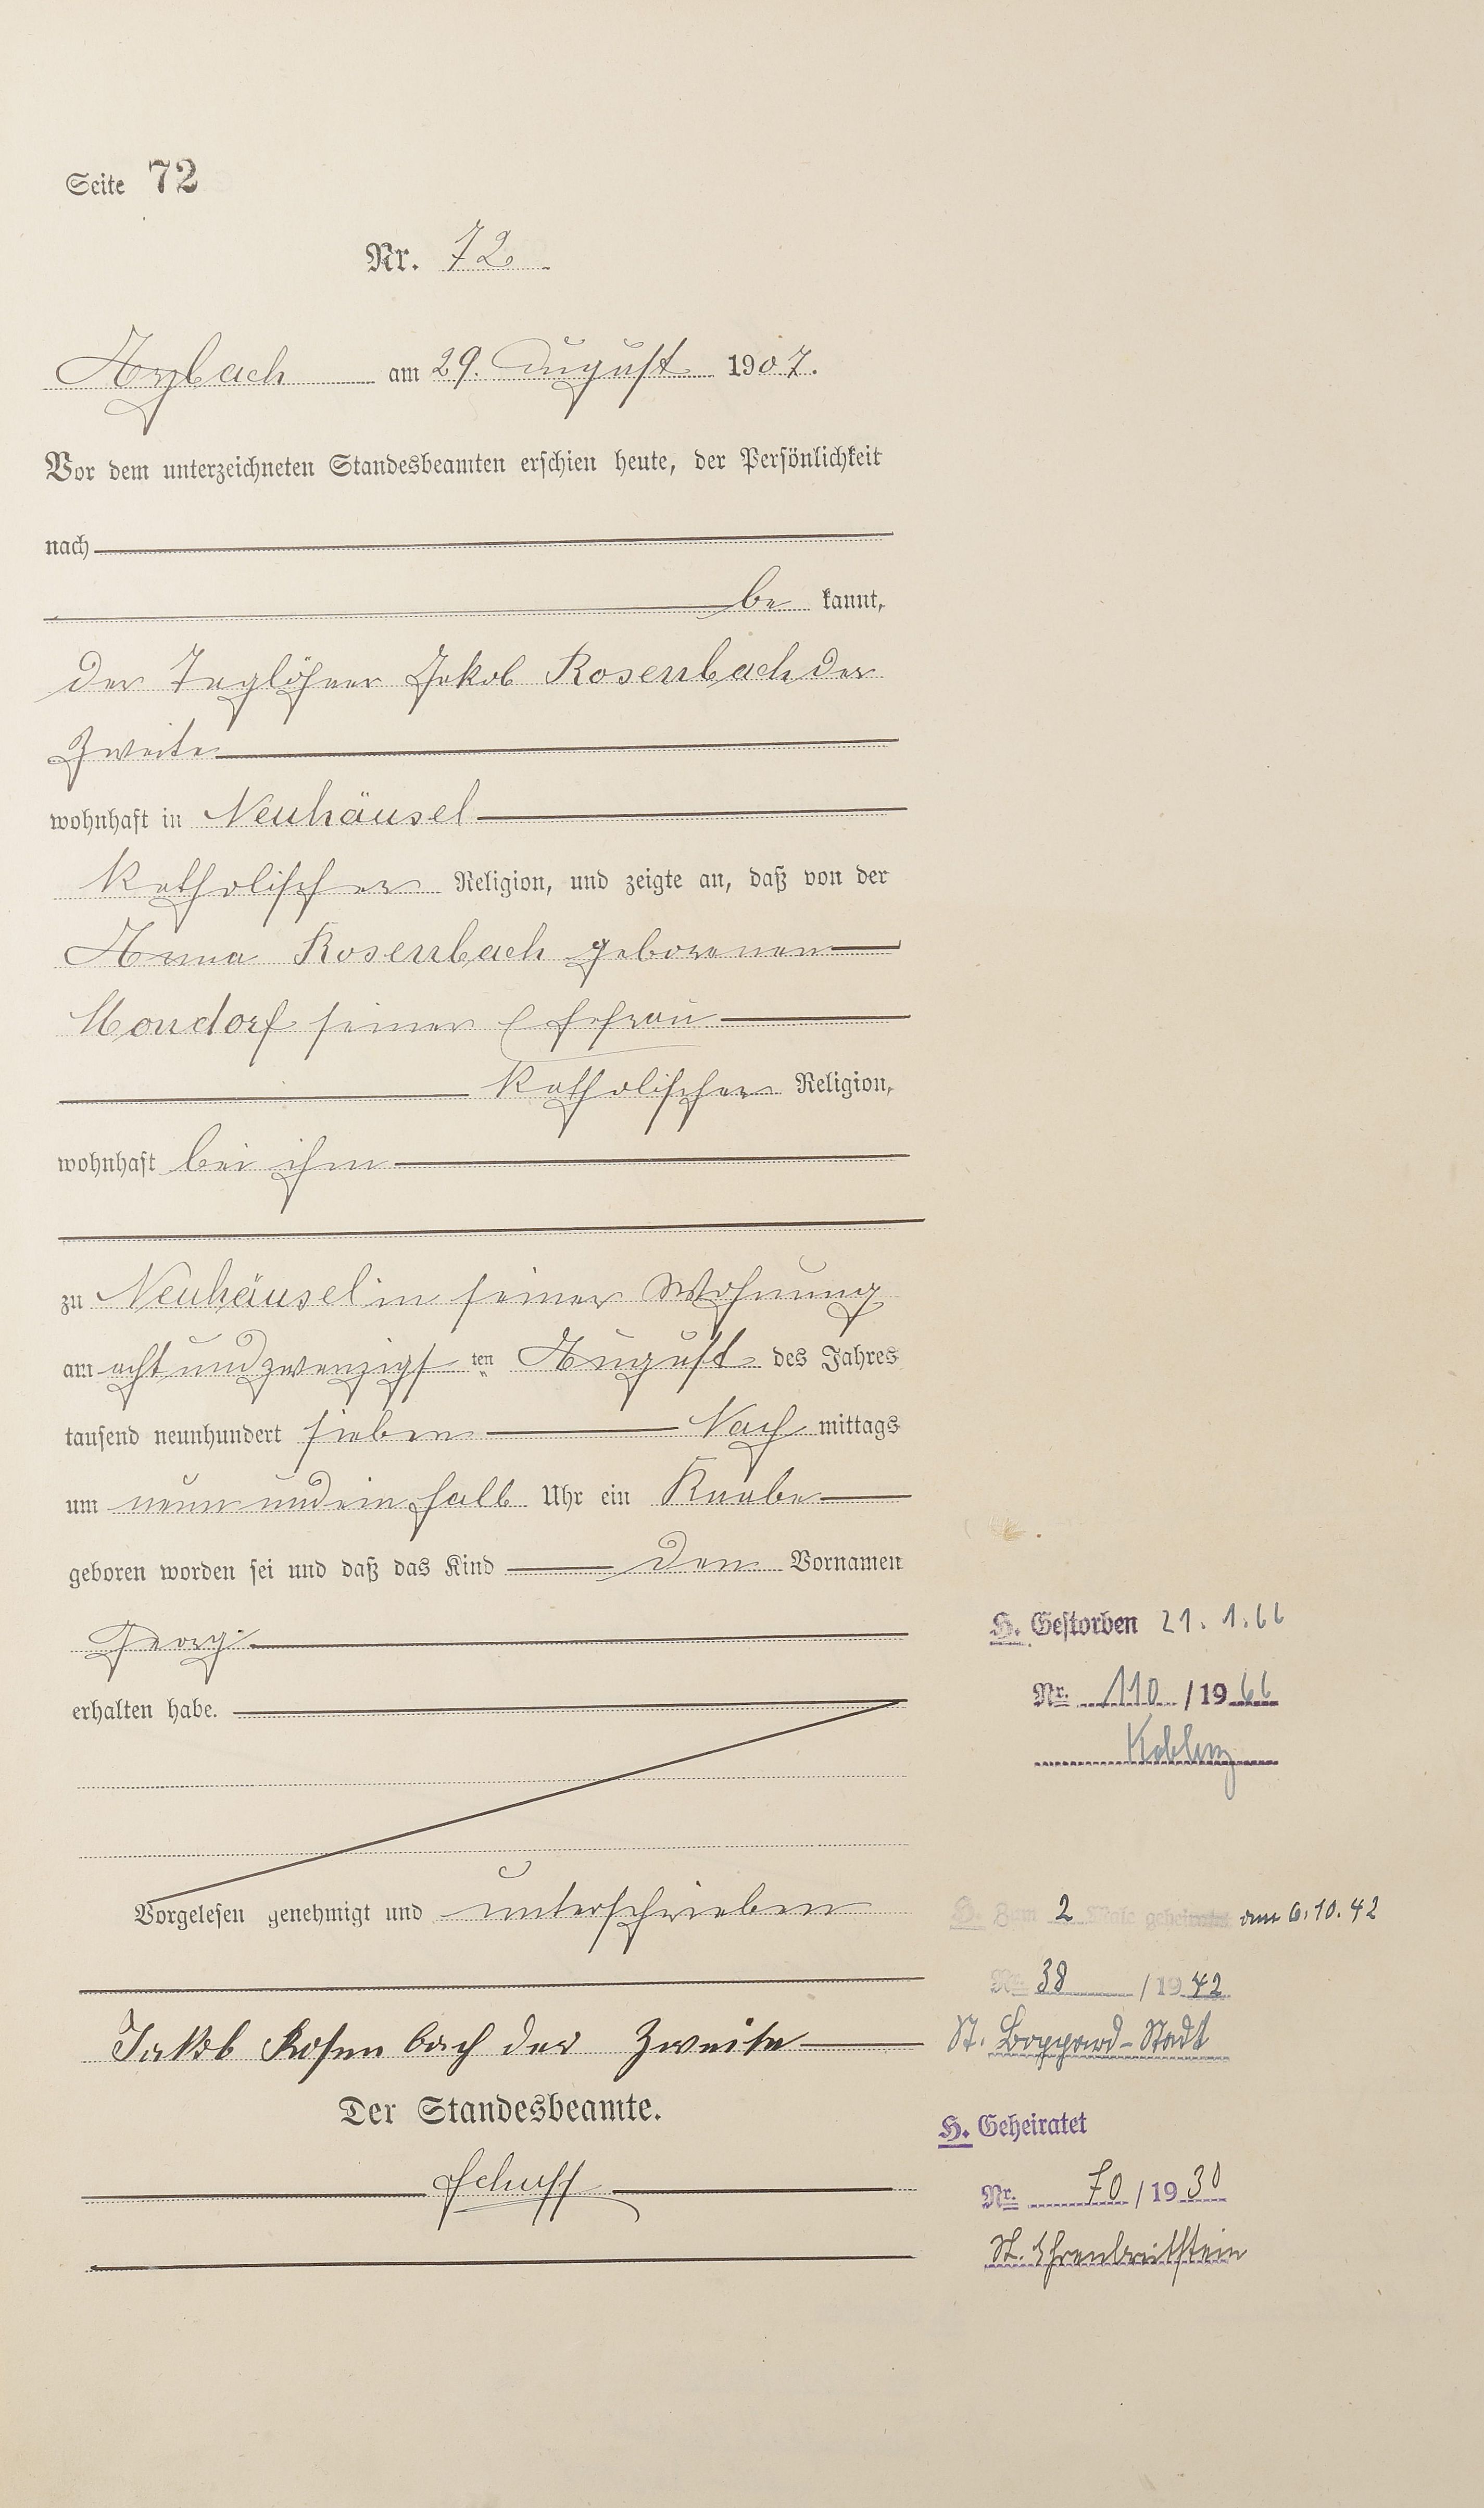 Seite 72
Nr. 72
Arzbach am 29. August 1907.
Vor dem unterzeichneten Standesbeamten erschien heute, der Persönlichkeit
nach
be kannt,
der Taglöhner Jakob Rosenbach der
Zweite
wohnhaft in Neuhäusel
katholischer Religion, und zeigte an, daß von der
Anna Rosenbach geborenen
Mondorf seiner Ehefrau
katholischer Religion,
wohnhaft bei ihm
zu Neuhäusel in seiner Wohnung
am acht und zwanzigs ten August des Jahres
tausend neunhundert sieben Nach mittags
um neun und ein halb Uhr ein Knabe
geboren worden sei und daß das Kind den Vornamen
Georg
erhalten habe.
H. Gestorben 21. 1. 66
Nr. 110 / 19 66
Koblenz
Vorgelesen genehmigt und unterschrieben
Jakob Rosenbach der Zweite
Der Standesbeamte.
Schuff
H. Zum 2 Male geheiratet am 6.10.42
Nr. 38 / 19 42
St. Boppard-Stadt
H. Geheiratet
Nr. 70 / 19 30
St. Ehrenbreitstein